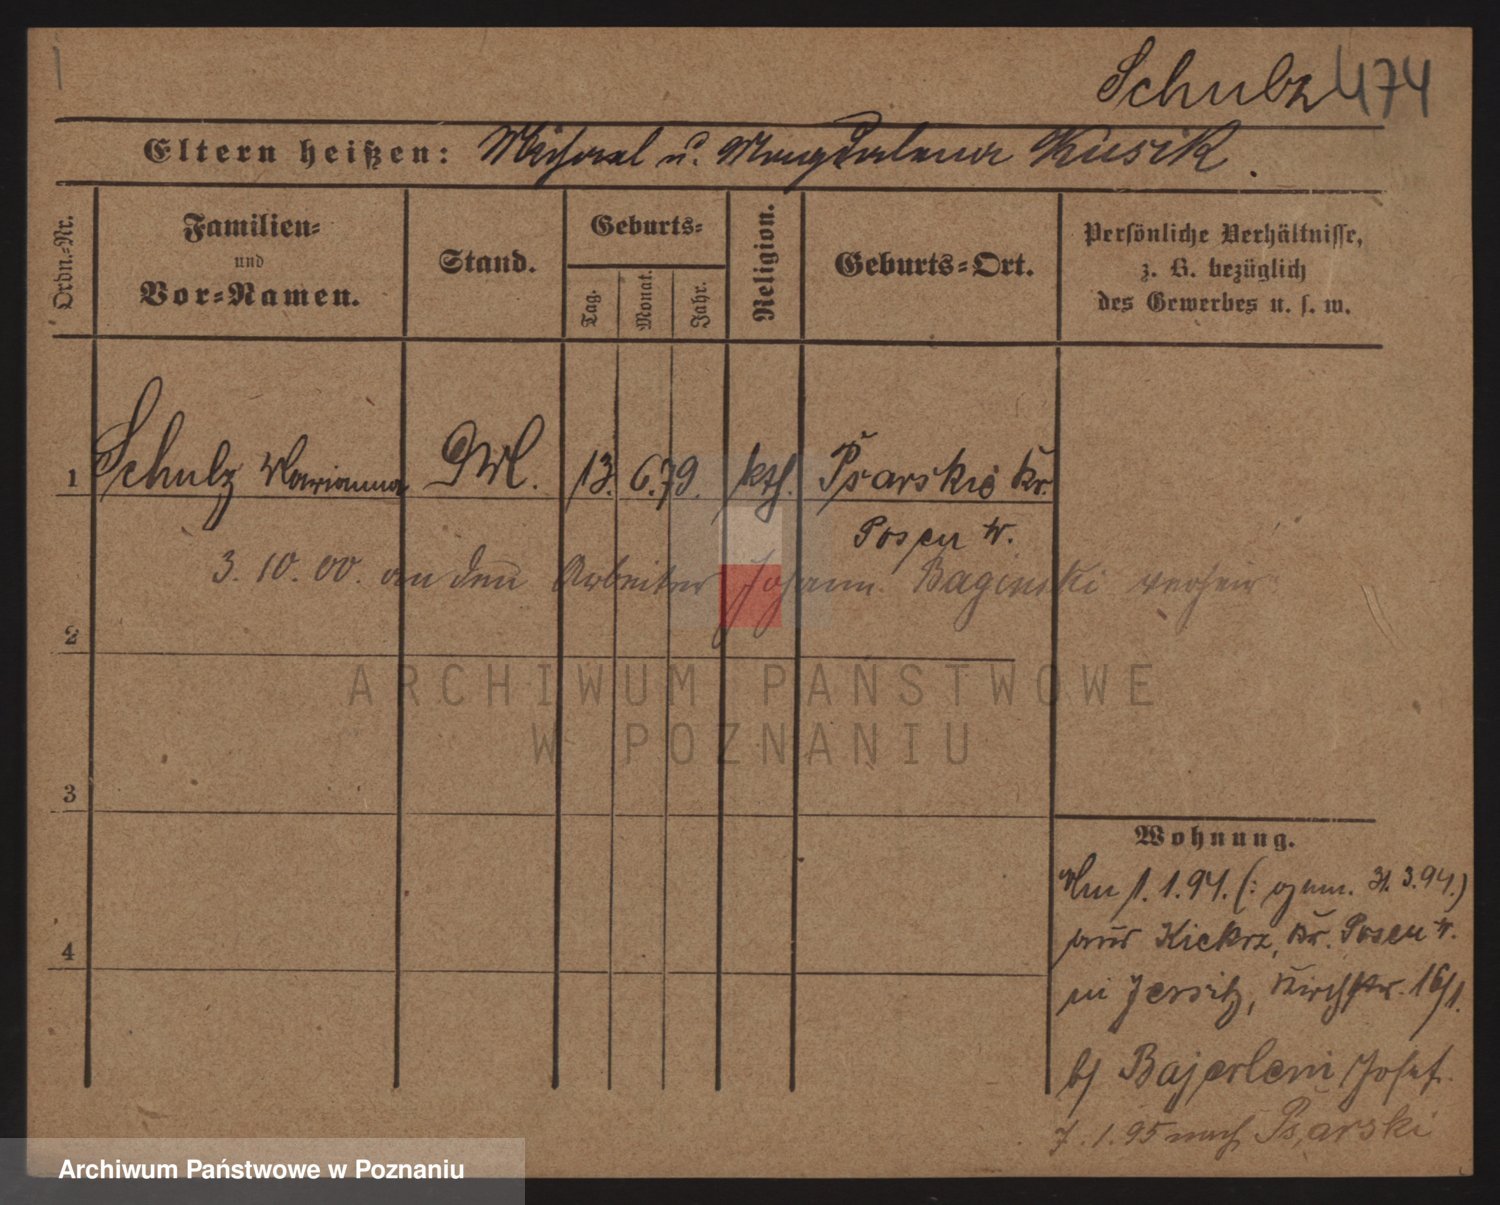 Schulz 474
Eltern heißen: Michael u. Magdalena Kusik.
Ordn.-Nr.
Familien-
und
Vor-Namen.
Stand.
Geburts-
Tag.
Monat.
Jahr.
Religion.
Geburts-Ort.
Persönliche Verhältnisse,
z. B. bezüglich
des Gewerbes u. s. w.
1 Schulz Marianna DM. 13. 6. 79. kth. Psarskie Kr.
Posen W.
3. 10. 00. an den Arbeiter Johann Baginski verheir
2
ARCHIWUM PAŃSTWOWE
W POZNANIU
3
4
Wohnung.
Am 1. 1. 94. (: 31. 3. 94.)
aus Kiekrz, Kr. Posen W.
in Jersitz, Kirchstr. 16/1.
b/ Bajerlein Josef.
7. 1. 95 nach Psarski
Archiwum Państwowe w Poznaniu